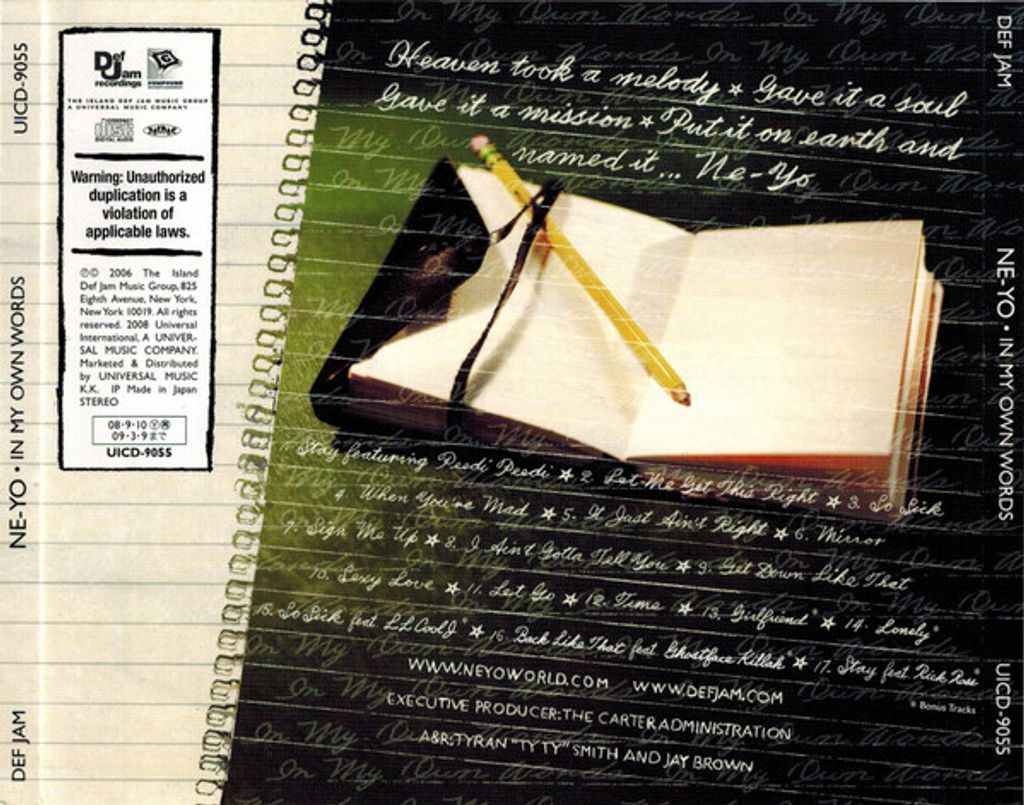 UICD-9055
NE-YO • IN MY OWN WORDS
DEF JAM
Def Jam recordings
COMPOUND
THE ISLAND DEF JAM MUSIC GROUP
A UNIVERSAL MUSIC COMPANY
COMPACT disc DIGITAL AUDIO
Warning: Unauthorized
duplication is a
violation of
applicable laws.
℗© 2006 The Island
Def Jam Music Group, 825
Eighth Avenue, New York,
New York 10019. All rights
reserved. 2008 Universal
International, A UNIVER-
SAL MUSIC COMPANY.
Marketed & Distributed
by UNIVERSAL MUSIC
K.K. IP Made in Japan
STEREO
08·9·10
09·3·9まで
UICD-9055
Heaven took a melody ★ Gave it a soul
Gave it a mission ★ Put it on earth and
named it... Ne-Yo
1. Stay featuring Peedi Peedi ★ 2. Let Me Get This Right ★ 3. So Sick
4. When You're Mad ★ 5. It Just Ain't Right ★ 6. Mirror
7. Sign Me Up ★ 8. I Ain't Gotta Tell You ★ 9. Get Down Like That
10. Sexy Love ★ 11. Let Go ★ 12. Time ★ 13. Girlfriend* ★ 14. Lonely*
15. So Sick feat. LL Cool J* ★ 16. Back Like That feat. Ghostface Killah* ★ 17. Stay feat. Rick Ross*
* Bonus Tracks
WWW.NEYOWORLD.COM WWW.DEFJAM.COM
EXECUTIVE PRODUCER: THE CARTER ADMINISTRATION
A&R: TYRAN "TY TY" SMITH AND JAY BROWN
DEF JAM
NE-YO • IN MY OWN WORDS
UICD-9055